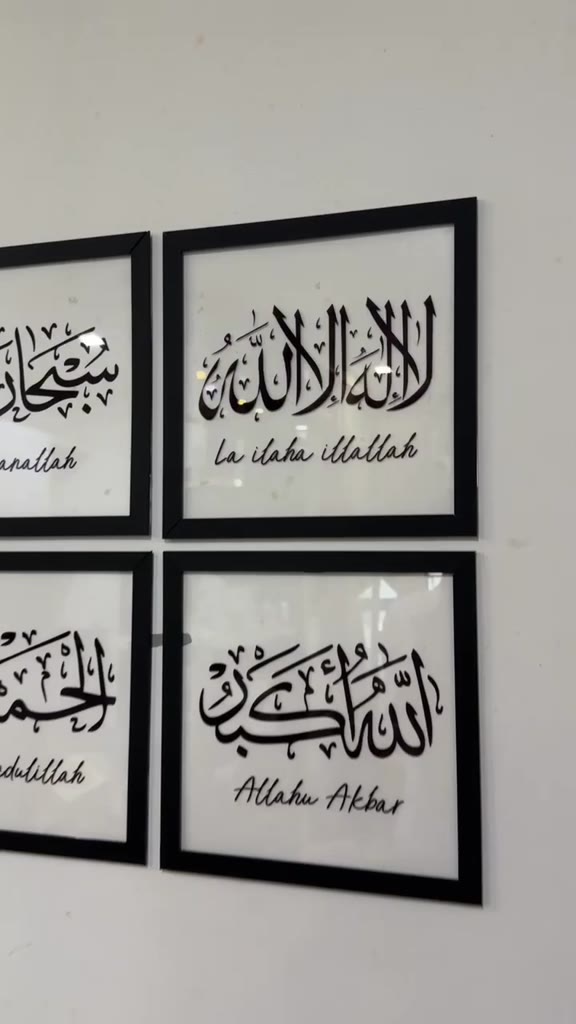 سبحان
anallah
لا إله إلا الله
La ilaha illallah
الحم
dulillah
الله أكبر
Allahu Akbar